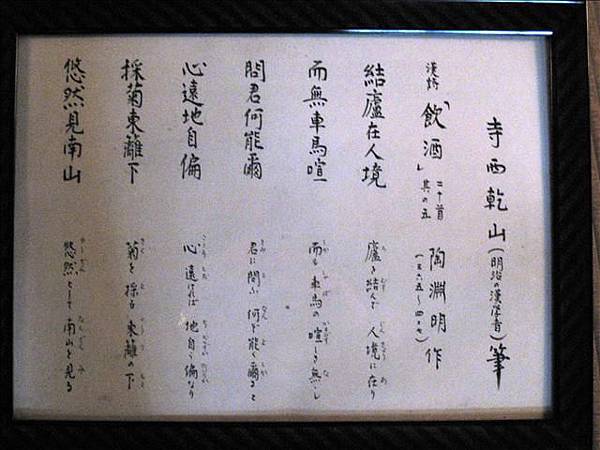 寺西乾山(明治の漢学者)筆
漢詩「飲酒」二十首 其の五 陶淵明作(三六五～四二七)
結廬在人境 廬を結んで 人境に在り
而無車馬喧 而も 車馬の 喧しき無し
問君何能爾 君に問ふ 何ぞ能く爾ると
心遠地自偏 心遠ければ 地自ら偏なり
採菊東籬下 菊を採る 東籬の下
悠然見南山 悠然として 南山を見る